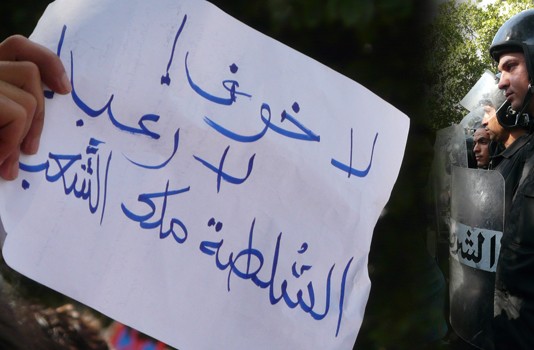 لا خوف !
لا رعب !
السُّلطة ملك الشَّعب
الشر